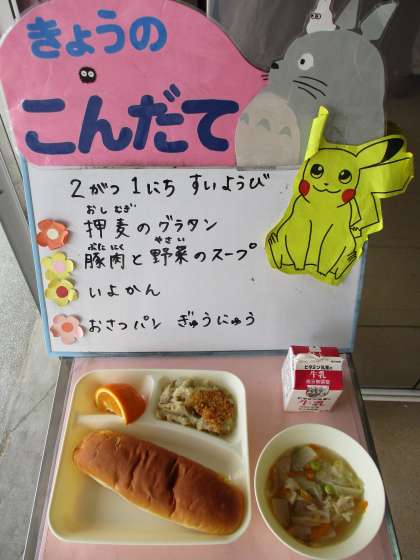 きょうの
こんだて
2がつ1にち すいようび
おし むぎ
押麦のグラタン
ぶたにく やさい
豚肉と野菜のスープ
いよかん
おさつパン ぎゅうにゅう
牛乳
牛乳